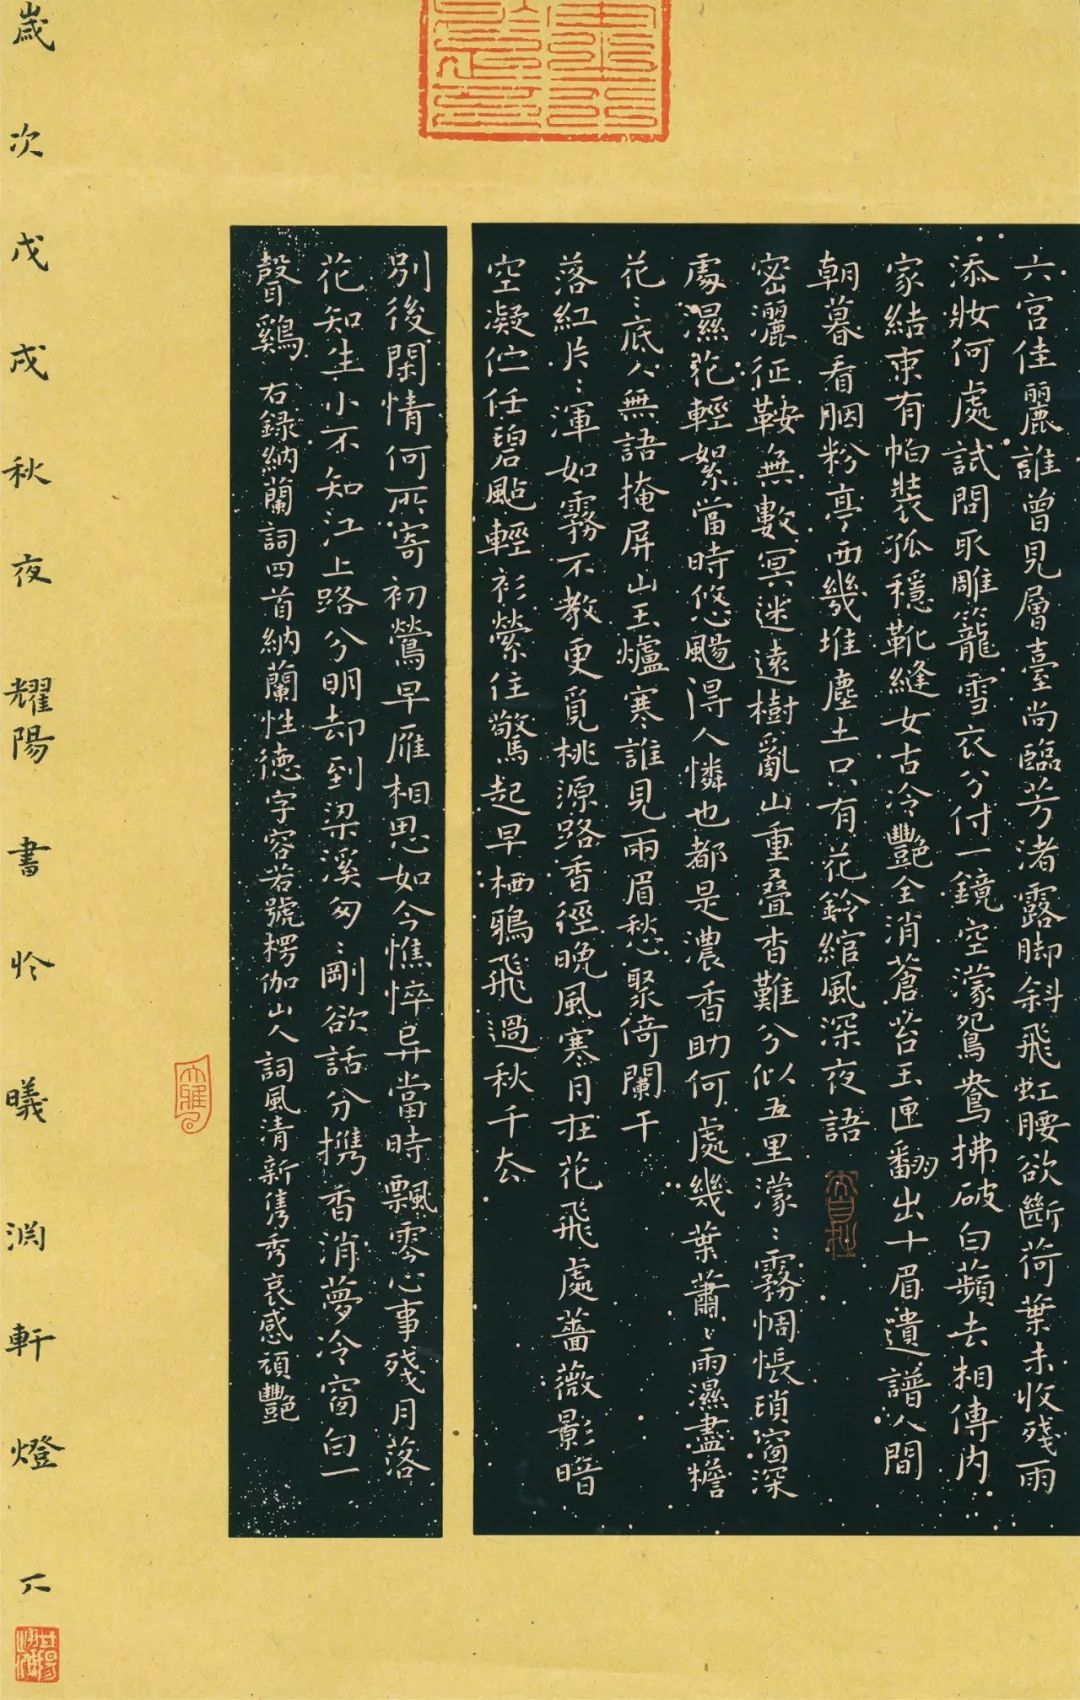 六宮佳麗誰曾見層臺尚臨芳渚露脚斜飛虹腰欲斷荷葉未收殘雨
添妝何處試問取雕籠雪衣分付一鏡空濛鴛鴦拂破白蘋去相傳內
家結束有帕裝孤穩靴縫女古冷豔全消蒼苔玉匣翻出十眉遺譜人間
朝暮看胭粉亭西幾堆塵土只有花鈴綰風深夜語
密灑征鞍無數冥迷遠樹亂山重疊杳難分似五里濛〻霧惆悵瑣窗深
處濕花輕絮當時悠颺得人憐也都是濃香助何處幾葉蕭〻雨濕盡檐
花〻底人無語掩屏山玉爐寒誰見兩眉愁聚倚闌干
落紅片〻渾如霧不教更覓桃源路香徑晚風寒月在花飛處薔薇影暗
空凝伫任碧颭輕衫縈住驚起早栖鴉飛過秋千去
別後閑情何所寄初鶯早雁相思如今憔悴异當時飄零心事殘月落
花知生小不知江上路分明却到梁溪匆〻剛欲話分携香消夢冷窗白一
聲鷄 右録納蘭詞四首納蘭性德字容若號楞伽山人詞風清新雋秀哀感頑豔
歲次戊戌秋夜耀陽書於曦淵軒燈下